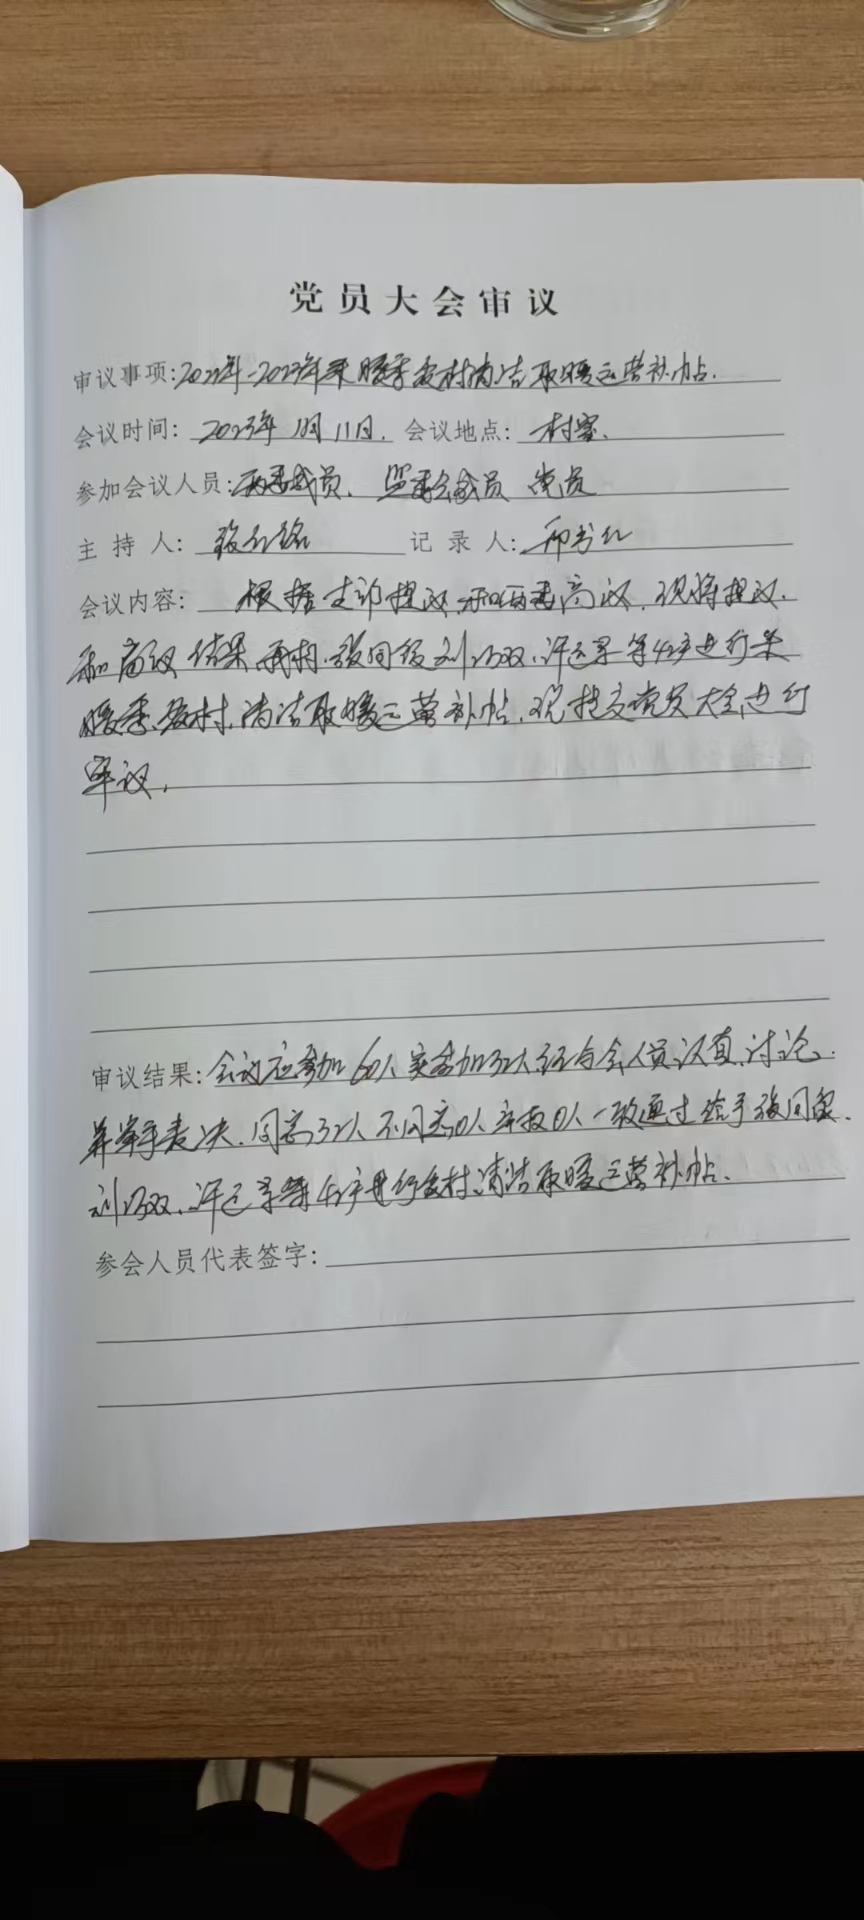 党员大会审议
审议事项:2022年-2023年采暖季农村清洁取暖运营补贴.
会议时间: 2023年 10月 11日. 会议地点: 村室.
参加会议人员:两委成员. 监委会成员 党员
主 持 人: 张 记 录 人:
会议内容: 根据支部提议.和两委商议.现将提议.
和商议结果.再将.张同 刘巧双.许运 等42户进行采
暖季.农村.清洁取暖运营补帖.现提交党员大会进行
审议.
审议结果:会议应参加60人实参加32人经与会人员认真讨论.
并举手表决.同意32人不同意0人弃权0人一致通过给予张同
刘巧双.许运 等42户进行农村.清洁取暖运营补帖.
参会人员代表签字: